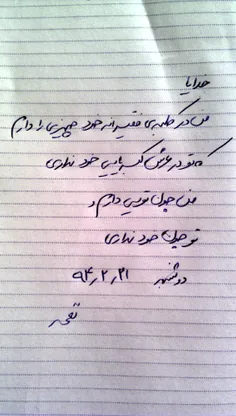 خدایا
من در کلبه‌ی فقیرانه خود چیزی را دارم
که تو در عرش کبریایی خود نداری
من چون تویی دارم و
تو چون خود نداری
دوشنبه ۹۴٫۲٫۲۱